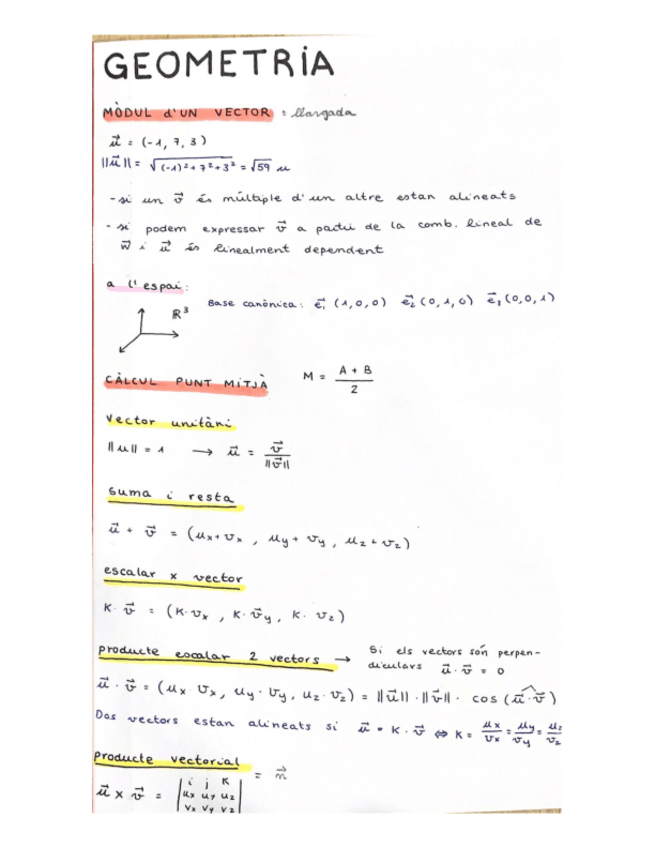 GEOMETRIA
MÒDUL d'UN VECTOR = llargada
u⃗ = (-1, 7, 3)
||u⃗|| = √((-1)² + 7² + 3²) = √59 u
- si un v⃗ és múltiple d'un altre estan alineats
- si podem expressar v⃗ a partir de la comb. lineal de
w⃗ i u⃗ és linealment dependent
a l'espai:
Base canònica: e⃗₁ (1,0,0) e⃗₂ (0,1,0) e⃗₃ (0,0,1)
ℝ³
CÀLCUL PUNT MITJÀ M = (A + B)/2
Vector unitàri
||u|| = 1 → u⃗ = v⃗/||v⃗||
suma i resta
u⃗ + v⃗ = (ux+vx , uy+vy , uz+vz)
escalar x vector
K · v⃗ = (K·vx , K·v⃗y , K·vz)
producte escalar 2 vectors → Si els vectors són perpen-
diculars u⃗ · v⃗ = 0
u⃗ · v⃗ = (ux·vx, uy·vy, uz·vz) = ||u⃗||·||v⃗||· cos (u⃗·v⃗)
Dos vectors estan alineats si u⃗ = K·v⃗ ⇔ K = ux/vx = uy/vy = uz/vz
producte vectorial
u⃗ x v⃗ = |i j K| = n⃗
|ux uy uz|
|vx vy vz|